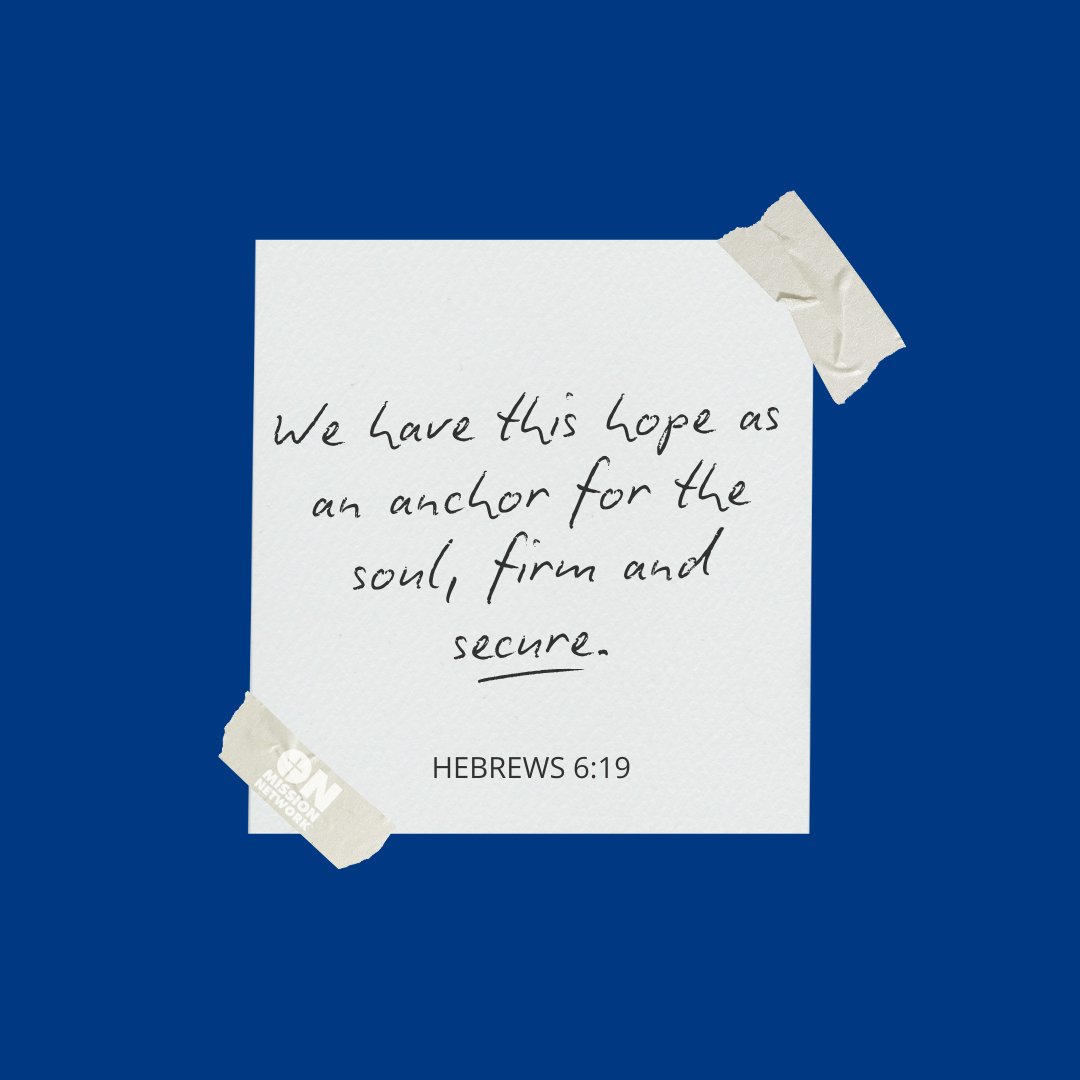 We have this hope as
an anchor for the
soul, firm and
secure.
HEBREWS 6:19
ON
MISSION
NETWORK